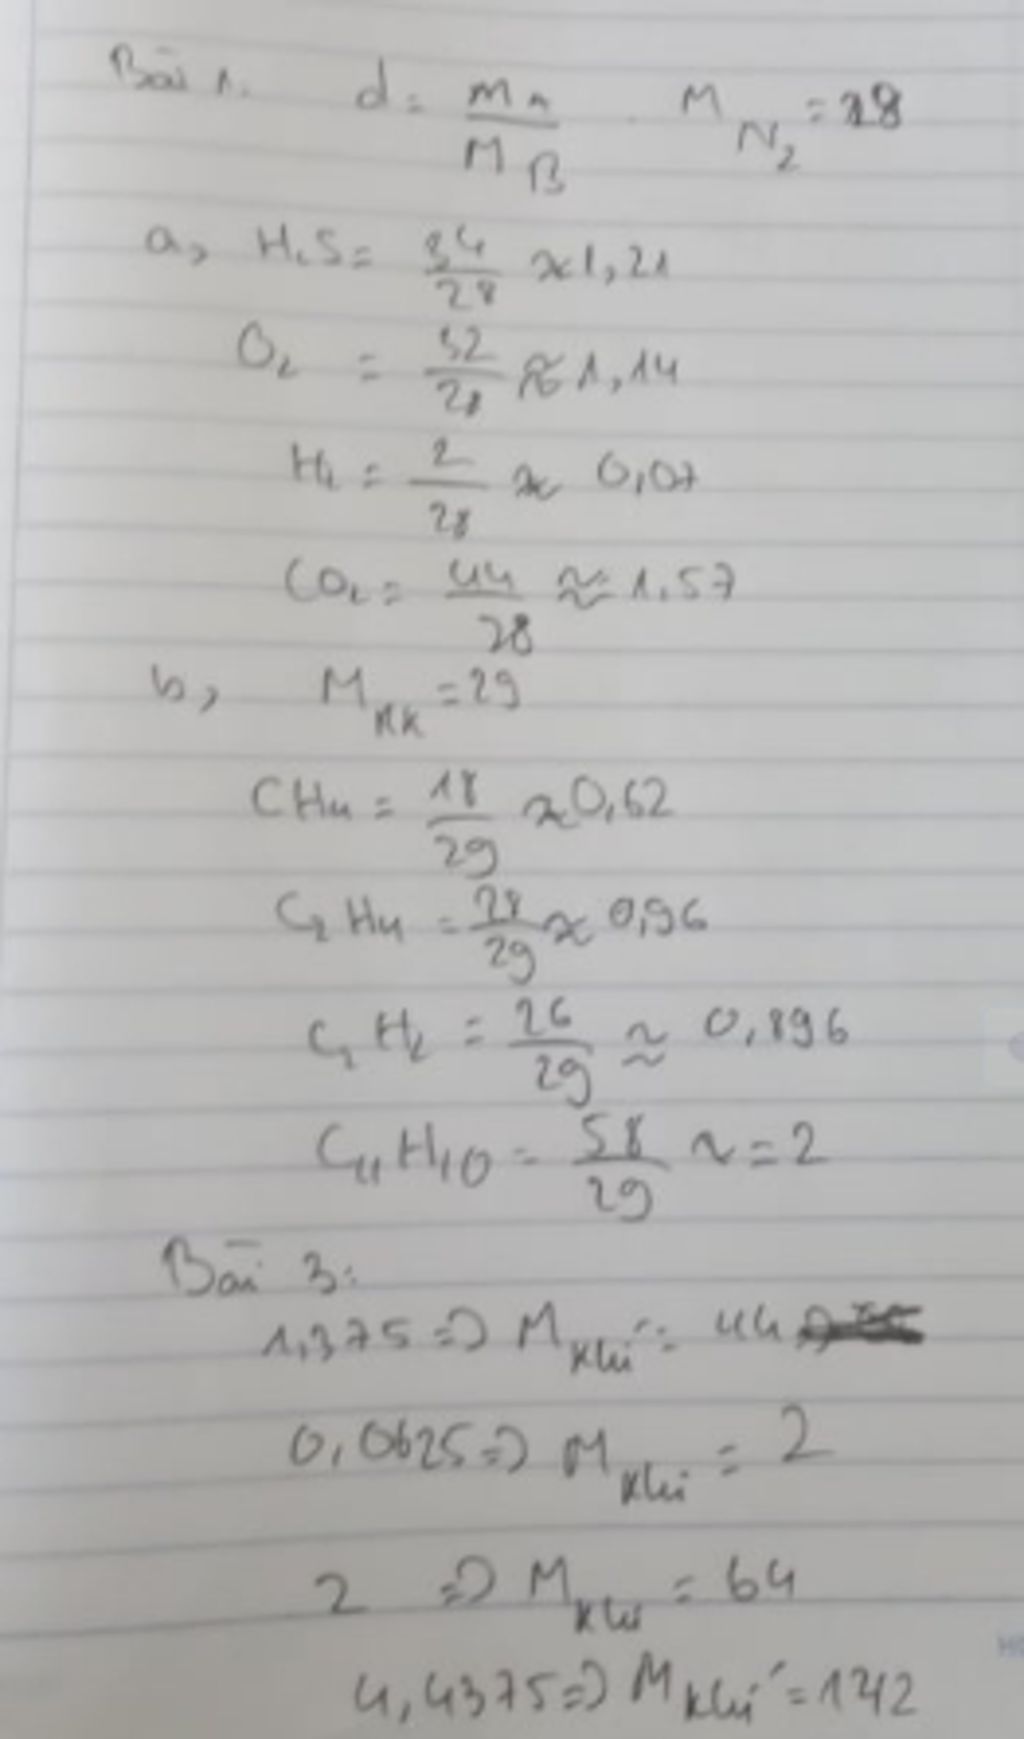 Bài 1. d = mA / MB . M N2 = 28
a, H2S = 34/28 ≈ 1,21
O2 = 32/28 ≈ 1,14
H2 = 2/28 ≈ 0,07
CO2 = 44/28 ≈ 1,57
b, M KK = 29
CH4 = 18/29 ≈ 0,62
C2H4 = 28/29 ≈ 0,96
C2H2 = 26/29 ≈ 0,896
C4H10 = 58/29 ~ = 2
Bài 3:
1,375 => M khí = 44
0,0625 => M khí = 2
2 => M khí = 64
4,4375 => M khí = 142